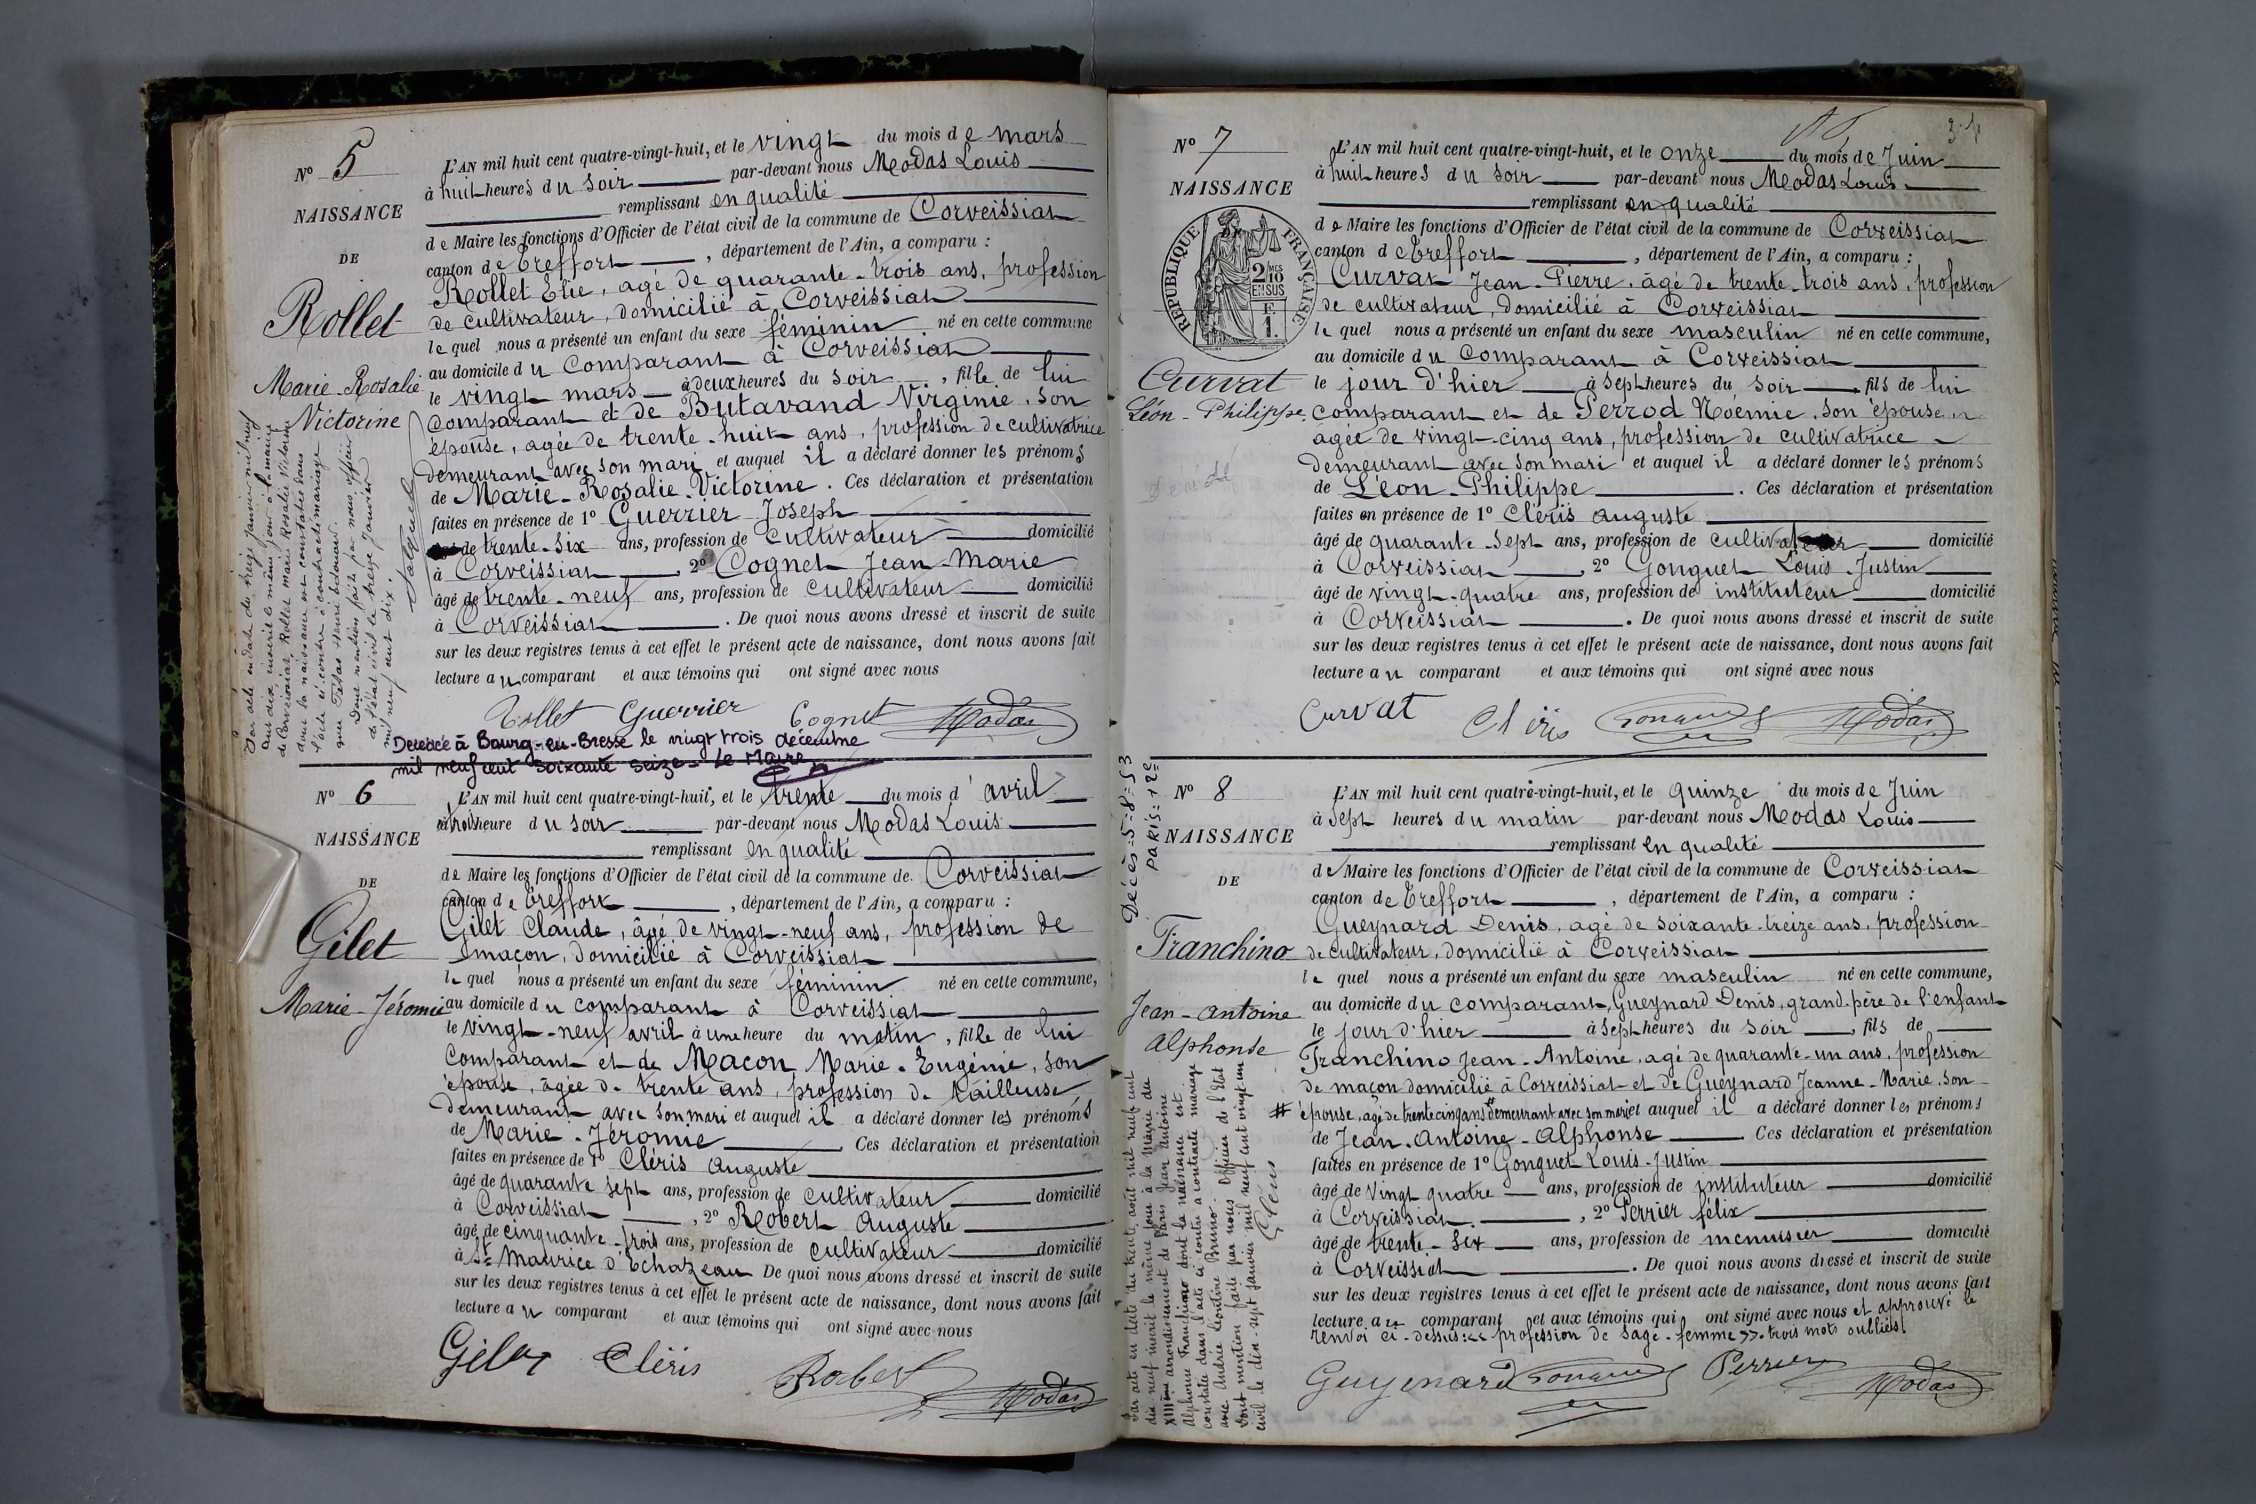 N° 5
NAISSANCE
DE
Rollet
Marie-Rosalie
Victorine
L'AN mil huit cent quatre-vingt-huit, et le vingt du mois de mars
à huit heures du soir par-devant nous Modas Louis
remplissant en qualité
de Maire les fonctions d'Officier de l'état civil de la commune de Corveissiat
canton de Treffort, département de l'Ain, a comparu :
Rollet Elie, agé de quarante-trois ans, profession
de cultivateur, domicilié à Corveissiat
lequel nous a présenté un enfant du sexe féminin né en cette commune
au domicile du comparant à Corveissiat
le vingt mars à deux heures du soir, fille de lui
comparant et de Butavand Virginie, son
épouse, agée de trente-huit ans, profession de cultivatrice
demeurant avec son mari et auquel il a déclaré donner les prénoms
de Marie-Rosalie-Victorine. Ces déclaration et présentation
faites en présence de 1° Guerrier Joseph
de trente-six ans, profession de cultivateur domicilié
à Corveissiat, 2° Cognet Jean-Marie
âgé de trente-neuf ans, profession de cultivateur domicilié
à Corveissiat. De quoi nous avons dressé et inscrit de suite
sur les deux registres tenus à cet effet le présent acte de naissance, dont nous avons fait
lecture au comparant et aux témoins qui ont signé avec nous
Rollet Guerrier Cognet Modas
Par acte en date du treize janvier mil neuf
cent dix, inscrit le même jour à la mairie
de Corveissiat, Rollet Marie Rosalie Victorine
dont la naissance est constatée dans
l'acte ci-contre a contracté mariage
avec Henri Edouard.
Dont mention faite par nous officier
de l'état civil le treize janvier
mil neuf cent dix.
Décédée à Bourg-en-Bresse le vingt trois décembre
mil neuf cent soixante seize - Le Maire
N° 6
NAISSANCE
DE
Gilet
Marie-Jéromie
L'AN mil huit cent quatre-vingt-huit, et le trente du mois d'avril
à trois heure du soir par-devant nous Modas Louis
remplissant en qualité
de Maire les fonctions d'Officier de l'état civil de la commune de Corveissiat
canton de Treffort, département de l'Ain, a comparu :
Gilet Claude, âgé de vingt-neuf ans, profession de
maçon, domicilié à Corveissiat
lequel nous a présenté un enfant du sexe féminin né en cette commune,
au domicile du comparant à Corveissiat
le vingt-neuf avril à une heure du matin, fille de lui
comparant et de Macon Marie-Eugénie, son
épouse, agée de trente ans, profession de tailleuse
demeurant avec son mari et auquel il a déclaré donner les prénoms
de Marie-Jéromie. Ces déclaration et présentation
faites en présence de 1° Cléris auguste
âgé de quarante sept ans, profession de cultivateur domicilié
à Corveissiat, 2° Robert Auguste
âgé de cinquante-trois ans, profession de cultivateur domicilié
à St Maurice d'Echazeau De quoi nous avons dressé et inscrit de suite
sur les deux registres tenus à cet effet le présent acte de naissance, dont nous avons fait
lecture au comparant et aux témoins qui ont signé avec nous
Gilet Cléris Robert Modas
N° 7
NAISSANCE
RÉPUBLIQUE FRANÇAISE
2 MES
10
EN SUS
F
1.
Curvat
Léon-Philippe
L'AN mil huit cent quatre-vingt-huit, et le onze du mois de Juin
à huit heures du soir par-devant nous Modas Louis
remplissant en qualité
de Maire les fonctions d'Officier de l'état civil de la commune de Corveissiat
canton de Treffort, département de l'Ain, a comparu :
Curvat Jean-Pierre, âgé de trente-trois ans, profession
de cultivateur, domicilié à Corveissiat
lequel nous a présenté un enfant du sexe masculin né en cette commune,
au domicile du comparant à Corveissiat
le jour d'hier à sept heures du soir fils de lui
comparant et de Perrod Noémie, son épouse
agée de vingt-cinq ans, profession de cultivatrice
demeurant avec son mari et auquel il a déclaré donner les prénoms
de Léon-Philippe. Ces déclaration et présentation
faites en présence de 1° Cléris auguste
âgé de quarante-sept ans, profession de cultivateur domicilié
à Corveissiat, 2° Gonguet Louis-Justin
âgé de vingt-quatre ans, profession de instituteur domicilié
à Corveissiat. De quoi nous avons dressé et inscrit de suite
sur les deux registres tenus à cet effet le présent acte de naissance, dont nous avons fait
lecture au comparant et aux témoins qui ont signé avec nous
Curvat Cléris Gonguet Modas
N° 8
NAISSANCE
DE
Franchino
Jean-Antoine
Alphonse
Décès = 5-8-53
PARIS = 12e
L'AN mil huit cent quatre-vingt-huit, et le quinze du mois de Juin
à sept heures du matin par-devant nous Modas Louis
remplissant en qualité
de Maire les fonctions d'Officier de l'état civil de la commune de Corveissiat
canton de Treffort, département de l'Ain, a comparu :
Gueynard Denis, agé de soixante-treize ans, profession
de cultivateur, domicilié à Corveissiat
lequel nous a présenté un enfant du sexe masculin né en cette commune,
au domicile du comparant, Gueynard Denis, grand-père de l'enfant
le jour d'hier à sept heures du soir, fils de
Franchino Jean-Antoine, agé de quarante-un ans, profession
de maçon domicilié à Corveissiat et de Gueynard Jeanne-Marie son
# épouse, agée de trente cinq ans # demeurant avec son mari et auquel il a déclaré donner les prénoms
de Jean-Antoine-Alphonse. Ces déclaration et présentation
faites en présence de 1° Gonguet Louis-Justin
âgé de Vingt quatre ans, profession de instituteur domicilié
à Corveissiat, 2° Perrier félix
âgé de trente-six ans, profession de menuisier domicilié
à Corveissiat. De quoi nous avons dressé et inscrit de suite
sur les deux registres tenus à cet effet le présent acte de naissance, dont nous avons fait
lecture au comparant et aux témoins qui ont signé avec nous et approuvé le
renvoi ci-dessus: << profession de sage-femme >>. trois mots oubliés.
Gueynard Gonguet Perrier Modas
Par acte en date du trente août mil neuf cent
dix neuf inscrit le même jour à la Mairie du
XIIIème arrondissement de Paris Jean Antoine
Alphonse Franchino dont la naissance est
constatée dans l'acte ci-contre a contracté mariage
avec Andrée Léontine Bruno.
Dont mention faite par nous Officier de l'état
civil le dix-sept janvier mil neuf cent vingt un